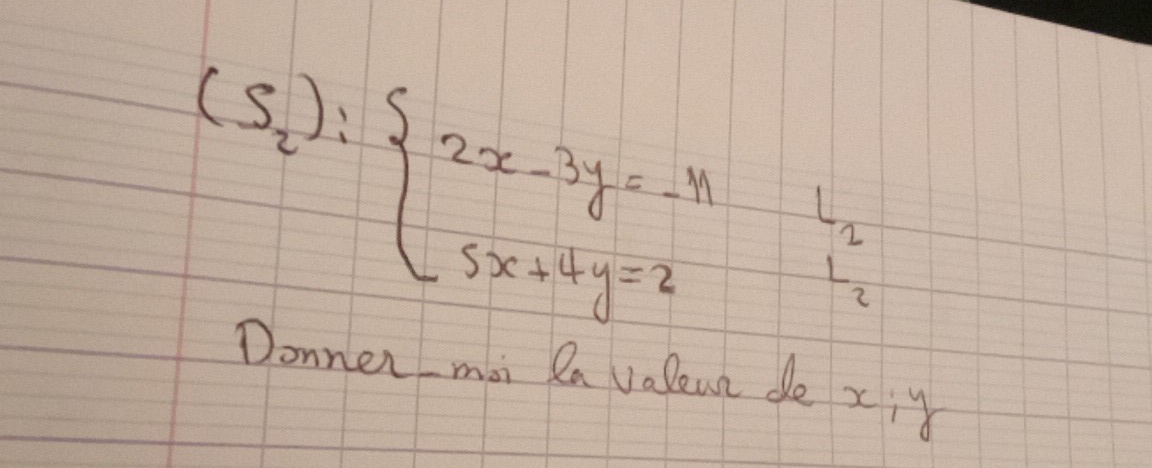 (S₂): { 2x - 3y = -11 L₂
5x + 4y = 2 L₂
Donner-moi la valeur de x; y